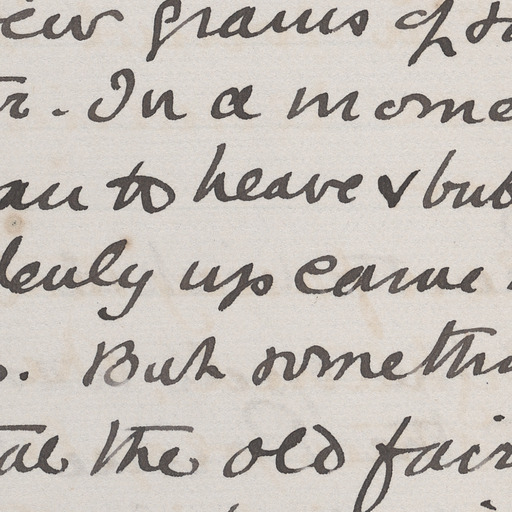 few grains of s
r. In a mome
an to heave & bub
denly up came
s. But somethi
tal the old fair